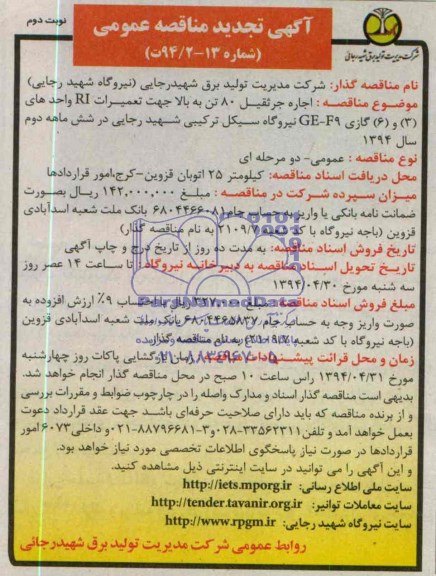 نوبت دوم
آگهی تجدید مناقصه عمومی
(شماره ۱۳-۹۴/۲ت)
شرکت مدیریت تولید برق شهیدرجایی
نام مناقصه گذار: شرکت مدیریت تولید برق شهیدرجایی (نیروگاه شهید رجایی)
موضوع مناقصه: اجاره جرثقیل ۸۰ تن به بالا جهت تعمیرات RI واحد های
(۳) و (۶) گازی GE-F۹ نیروگاه سیکل ترکیبی شهید رجایی در شش ماهه دوم
سال ۱۳۹۴
نوع مناقصه: عمومی- دو مرحله ای
محل دریافت اسناد مناقصه: کیلومتر ۲۵ اتوبان قزوین-کرج،امور قراردادها
میزان سپرده شرکت در مناقصه: مبلغ ۱۴۲,۰۰۰,۰۰۰ ریال بصورت
ضمانت نامه بانکی یا واریز به حساب جام ۶۸۰۴۴۶۶۰۸۱ بانک ملت شعبه اسدآبادی
قزوین (باجه نیروگاه با کد شعبه ۲۱۰۹/۷ به نام مناقصه گذار)
تاریخ فروش اسناد مناقصه: به مدت ده روز از تاریخ درج و چاپ آگهی
تاریخ تحویل اسناد مناقصه به دبیرخانه نیروگاه: تا ساعت ۱۴ عصر روز
سه شنبه مورخ ۱۳۹۴/۰۴/۳۰
مبلغ فروش اسناد مناقصه: مبلغ ریال با احتساب ۹٪ ارزش افزوده به
صورت واریز وجه به حساب جام ۶۸۰۴۴۶۵۸۳۷ بانک ملت شعبه اسدآبادی قزوین
(باجه نیروگاه با کد شعبه ۲۱۰۹/۷) به نام مناقصه گذار
زمان و محل قرائت پیشنهادات: زمان بازگشایی پاکات روز چهارشنبه
مورخ ۱۳۹۴/۰۴/۳۱ راس ساعت ۱۰ صبح در محل مناقصه گذار انجام خواهد شد.
بدیهی است مناقصه گذار اسناد و مدارک واصله را در چارچوب ضوابط و مقررات بررسی
و از برنده مناقصه که باید دارای صلاحیت حرفه‌ای باشد جهت عقد قرارداد دعوت
بعمل خواهد آمد و تلفن ۳۳۵۶۲۳۱۱-۰۲۸ و ۳-۸۸۷۹۶۶۸۱-۰۲۱ و داخلی ۶۰۷۳ امور
قراردادها در صورت نیاز پاسخگوی اطلاعات تخصصی مورد نیاز خواهد بود.
و این آگهی را می توانید در سایت اینترنتی ذیل مشاهده کنید.
سایت ملی اطلاع رسانی: http://iets.mporg.ir
سایت معاملات توانیر: http://tender.tavanir.org.ir
سایت نیروگاه شهید رجایی: http://www.rpgm.ir
روابط عمومی شرکت مدیریت تولید برق شهیدرجائی